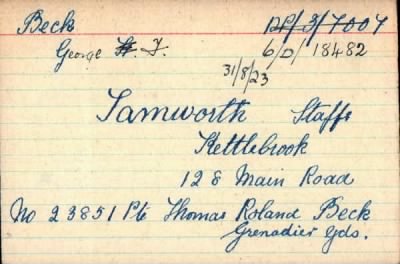 Beck DP/3/7007
George H. J. 6/D/18482
31/8/23
Tamworth Staffs
Kettlebrook
128 Main Road
No 23851 Pte Thomas Roland Beck
Grenadier Gds.